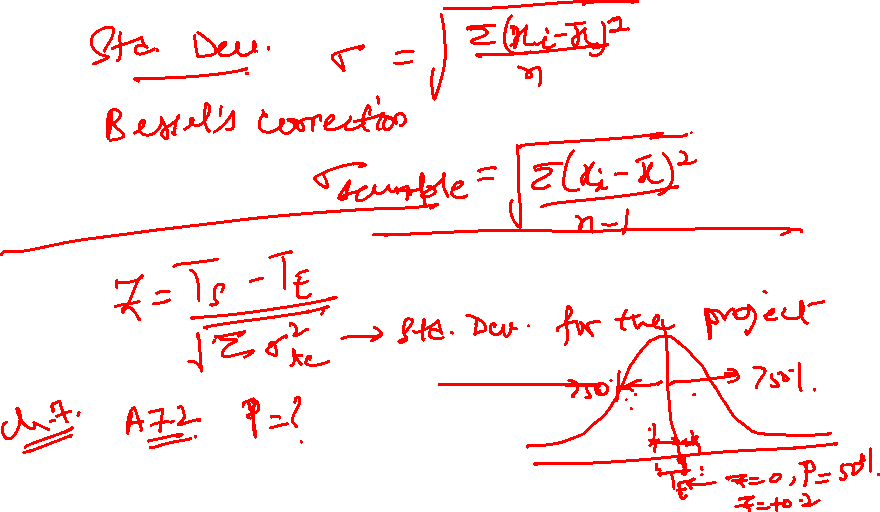 Std. Dev. σ = √(Σ(xi-x̄)²/n)
Bessel's correction
σsample = √(Σ(xi-x̄)²/n-1)
Z = Ts - TE / √Σσ²te → Std. Dev. for the project
>50%. >50%.
ch-7. A7.2 P=?
TE ← Z=0, P=50%.
Z=+0.2